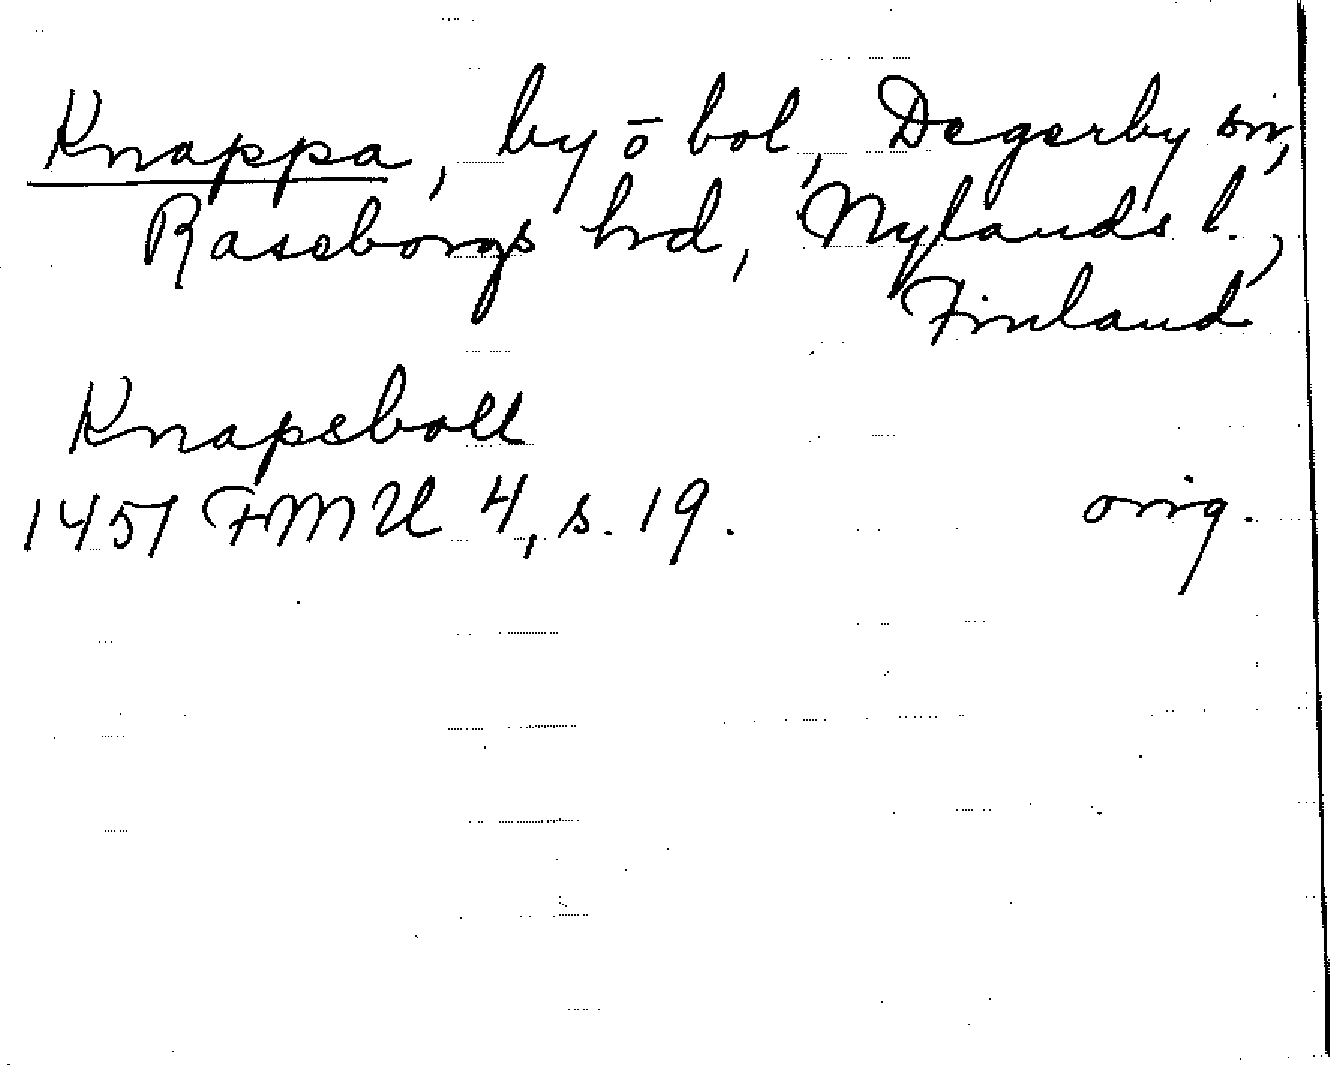 Knappa, by o bol, Degerby sn,
Raseborgs hrd, Nylands l.,
Finland
Knapsboll
1451 FMU 4, s. 19. orig.